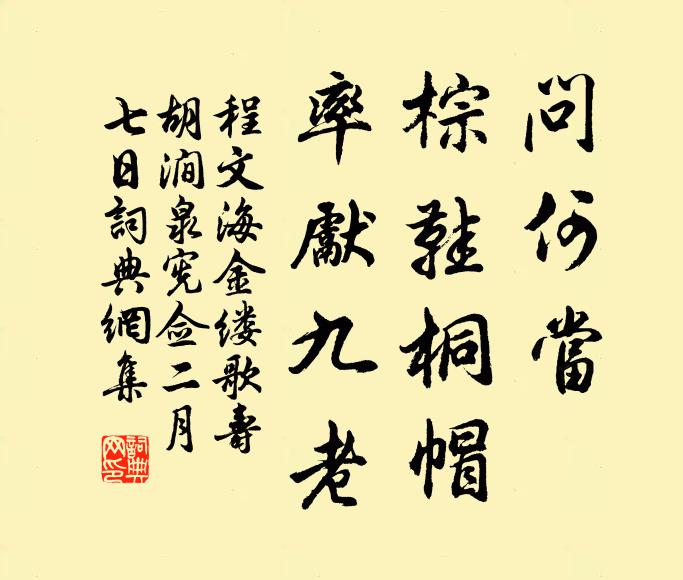 問何當
棕鞋桐帽
率獻九老
程文海金缕歌壽
胡澗泉宪佥二月
七日詞典網集
詞典
网印